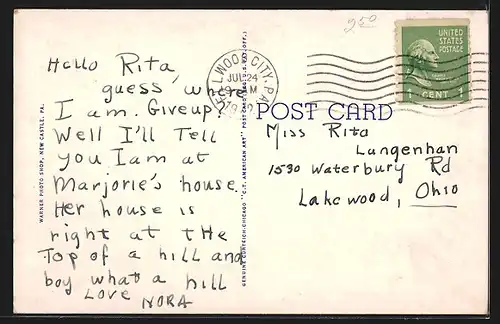 2.50
UNITED
STATES
POSTAGE
1 CENT 1
ELLWOOD CITY, P.A.
JUL 24
M
POST CARD
Hello Rita,
guess, where
I am. Giveup?
Well I'll Tell
you I am at
Marjorie's house.
Her house is
right at THe
Top of a hill and
boy what a hill
Love NORA
Miss Rita
Langenhan
1530 Waterbury Rd
Lakewood, Ohio
WARNER PHOTO SHOP, NEW CASTLE, PA.
GENUINE CURTEICH-CHICAGO "C.T. AMERICAN ART" POST CARD (REG. U.S. PAT. OFF.)